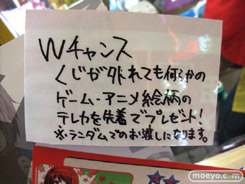 Wチャンス
くじが外れても何らかの
ゲーム・アニメ絵柄の
テレカを先着でプレゼント!
※ランダムでのお渡しになります。
moeyo.com